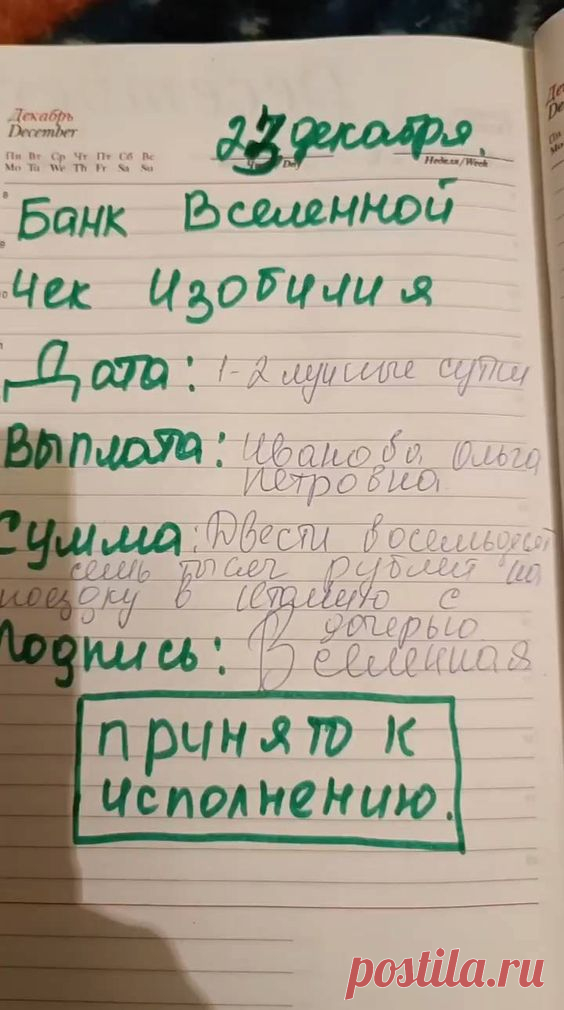 Декабрь
December
23 декабря.
Пн Вт Ср Чт Пт Сб Вс
Mo Tu We Th Fr Sa Su
Day
Неделя/Week
Банк Вселенной
Чек Изобилия
Дата: 1-2 лунные сутки
Выплата: Иванова Ольга
Петровна
Сумма: Двести восемьдесят
семь тысяч рублей на
поездку в Италию с
дочерью
Подпись: Вселенная
принято к
исполнению.
postila.ru